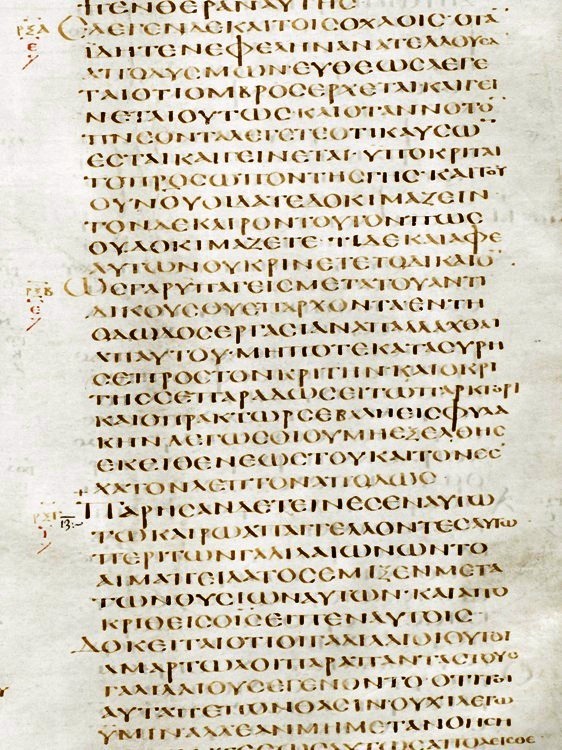 ΠΕΝΘΕΡΑΝΑΥΤΗΣ
ΕΛΕΓΕΝΔΕΚΑΙΤΟΙΣΟΧΛΟΙΣΟΤΑ
ΪΔΗΤΕΝΕΦΕΛΗΝΑΝΑΤΕΛΛΟΥΣΑ
ΑΠΟΔΥΣΜΩΝΕΥΘΕΩΣΛΕΓΕ
ΤΑΙΟΤΙΟΜΒΡΟΣΕΡΧΕΤΑΙΚΑΙΓΕΙ
ΝΕΤΑΙΟΥΤΩΣ·ΚΑΙΟΤΑΝΝΟΤΟ
ΠΝΕΟΝΤΑΛΕΓΕΤΕΟΤΙΚΑΥΣΩ
ΕΣΤΑΙΚΑΙΓΕΙΝΕΤΑΙ·ΥΠΟΚΡΙΤΑΙ
ΤΟΠΡΟΣΩΠΟΝΤΗΣΓΗΣ·ΚΑΙΤΟΥ
ΟΥΝΟΥΟΙΔΑΤΕΔΟΚΙΜΑΖΕΙΝ
ΤΟΝΔΕΚΑΙΡΟΝΤΟΥΤΟΝΠΩΣ
ΟΥΔΟΚΙΜΑΖΕΤΕ·ΤΙΔΕΚΑΙΑΦΕ
ΑΥΤΩΝΟΥΚΡΙΝΕΤΕΤΟΔΙΚΑΙΟ
ΩΣΓΑΡΥΠΑΓΕΙΣΜΕΤΑΤΟΥΑΝΤΙ
ΔΙΚΟΥΣΟΥΕΠΑΡΧΟΝΤΑΕΝΤΗ
ΟΔΩΔΟΣΕΡΓΑΣΙΑΝΑΠΑΛΛΑΧΘΑΙ
ΑΠΑΥΤΟΥ·ΜΗΠΟΤΕΚΑΤΑΣΥΡΗ
ΣΕΠΡΟΣΤΟΝΚΡΙΤΗΝ·ΚΑΙΟΚΡΙ
ΤΗΣΣΕΠΑΡΑΔΩΣΕΙΤΩΠΡΑΚΤΟΡΙ
ΚΑΙΟΠΡΑΚΤΩΡΣΕΒΑΛΗΕΙΣΦΥΛΑ
ΚΗΝΛΕΓΩΣΟΙΟΥΜΗΕΞΕΛΘΗΣ
ΕΚΕΙΘΕΝΕΩΣΤΟΥΚΑΙΤΟΝΕΣ
ΧΑΤΟΝΛΕΠΤΟΝΑΠΟΔΩΣ
ΠΑΡΗΣΑΝΔΕΤΕΙΝΕΣΕΝΑΥΤΩ
ΤΩΚΑΙΡΩΑΠΑΓΓΕΛΛΟΝΤΕΣΑΥΤΩ
ΠΕΡΙΤΩΝΓΑΛΙΛΑΙΩΝΩΝΤΟ
ΑΙΜΑΠΕΙΛΑΤΟΣΕΜΙΞΕΝΜΕΤΑ
ΤΩΝΘΥΣΙΩΝΑΥΤΩΝ·ΚΑΙΑΠΟ
ΚΡΙΘΕΙΣΟΙΣΕΙΠΕΝΑΥΤΟΙΣ
ΔΟΚΕΙΤΑΙΟΤΙΟΙΓΑΛΙΛΑΙΟΙΟΥΤΟΙ
ΑΜΑΡΤΩΛΟΙΠΑΡΑΠΑΝΤΑΣΤΟΥΣ
ΓΑΛΙΛΑΙΟΥΣΕΓΕΝΟΝΤΟ·ΟΤΙΤΟΙ
ΑΥΤΑΠΕΠΟΝΘΑΣΙΝΟΥΧΙΛΕΓΩ
ΥΜΙΝΑΛΛΕΑΝΜΗΜΕΤΑΝΟΗΣΗ